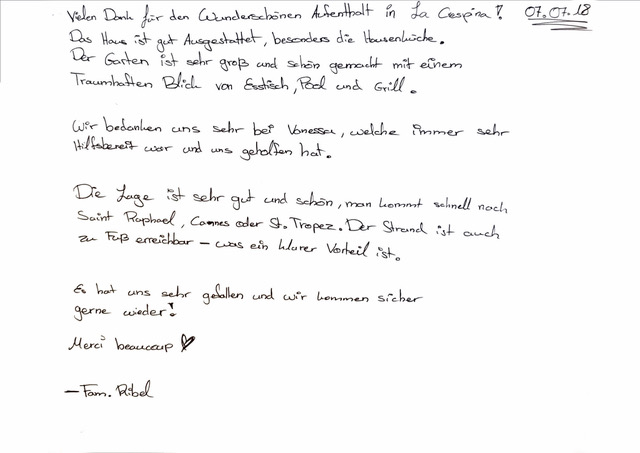 Vielen Dank für den Wunderschönen Aufenthalt in La Cespina! 07.07.18
Das Haus ist gut Ausgestattet, besonders die Aussenküche.
Der Garten ist sehr groß und schön gemacht mit einem
Traumhaften Blick von Esstisch, Pool und Grill.
Wir bedanken uns sehr bei Vanessa, welche immer sehr
Hilfsbereit war und uns geholfen hat.
Die Lage ist sehr gut und schön, man kommt schnell nach
Saint Raphael, Cannes oder St. Tropez. Der Strand ist auch
zu Fuß erreichbar – was ein klarer Vorteil ist.
Es hat uns sehr gefallen und wir kommen sicher
gerne wieder!
Merci beaucoup
– Fam. Ribel